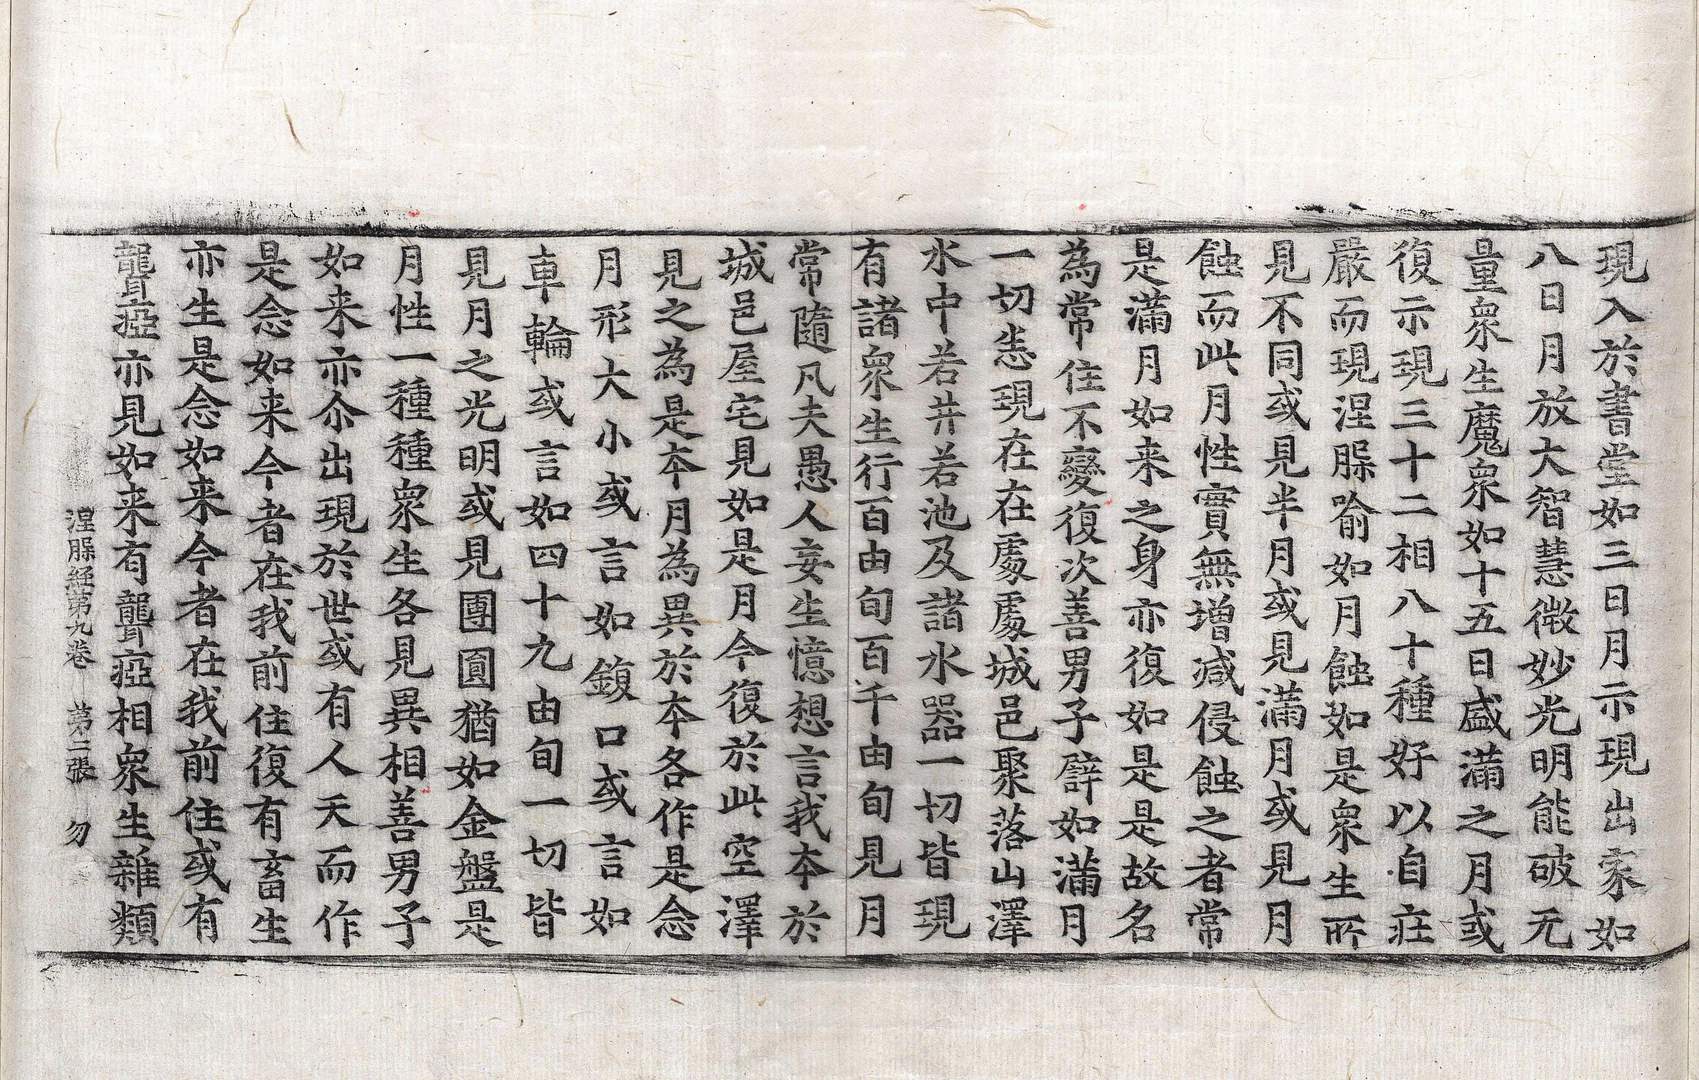 現入於書堂如三日月示現出家如
八日月放大智慧微妙光明能破无
量衆生魔衆如十五日盛滿之月或
復示現三十二相八十種好以自莊
嚴而現涅槃喻如月蝕如是衆生所
見不同或見半月或見滿月或見月
蝕而此月性實無增減侵蝕之者常
是滿月如来之身亦復如是是故名
為常住不變復次善男子譬如滿月
一切悉現在在處處城邑聚落山澤
水中若井若池及諸水器一切皆現
有諸衆生行百由旬百千由旬見月
常隨凡夫愚人妄生憶想言我本於
城邑屋宅見如是月今復於此空澤
見之為是本月為異於本各作是念
月形大小或言如鍑口或言如
車輪或言如四十九由旬一切皆
見月之光明或見團圓猶如金盤是
月性一種種衆生各見異相善男子
如来亦尒出現於世或有人天而作
是念如来今者在我前住復有畜生
亦生是念如来今者在我前住或有
聾瘂亦見如来有聾瘂相衆生雜類
涅槃經第九卷 第二張 勿